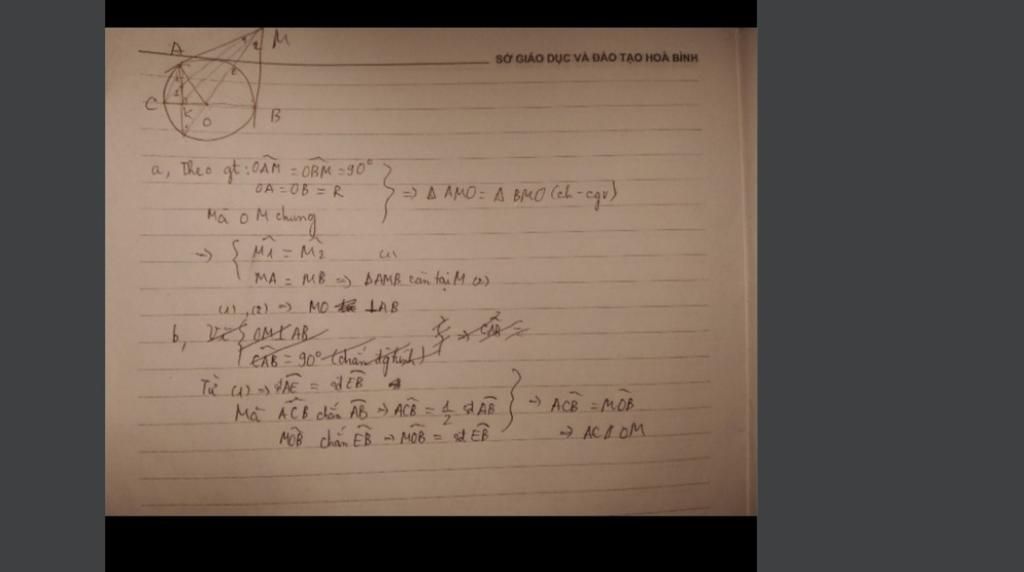 M
A
SỞ GIÁO DỤC VÀ ĐÀO TẠO HOÀ BÌNH
C
K
O
B
a, Theo gt: OAM = OBM = 90°
OA = OB = R
Mà OM chung
=> Δ AMO = Δ BMO (ch-cgv)
=> { M1 = M2 (1)
MA = MB => ΔAMB cân tại M (2)
(1), (2) => MO ⊥ AB
b, Vì { OM ⊥ AB
CAB = 90° (chắn
Từ (1) => sđ AE = sđ EB
Mà ACB chắn AB => ACB = 1/2 sđ AB
MOB chắn EB => MOB = sđ EB
=> ACB = MOB
=> AC // OM